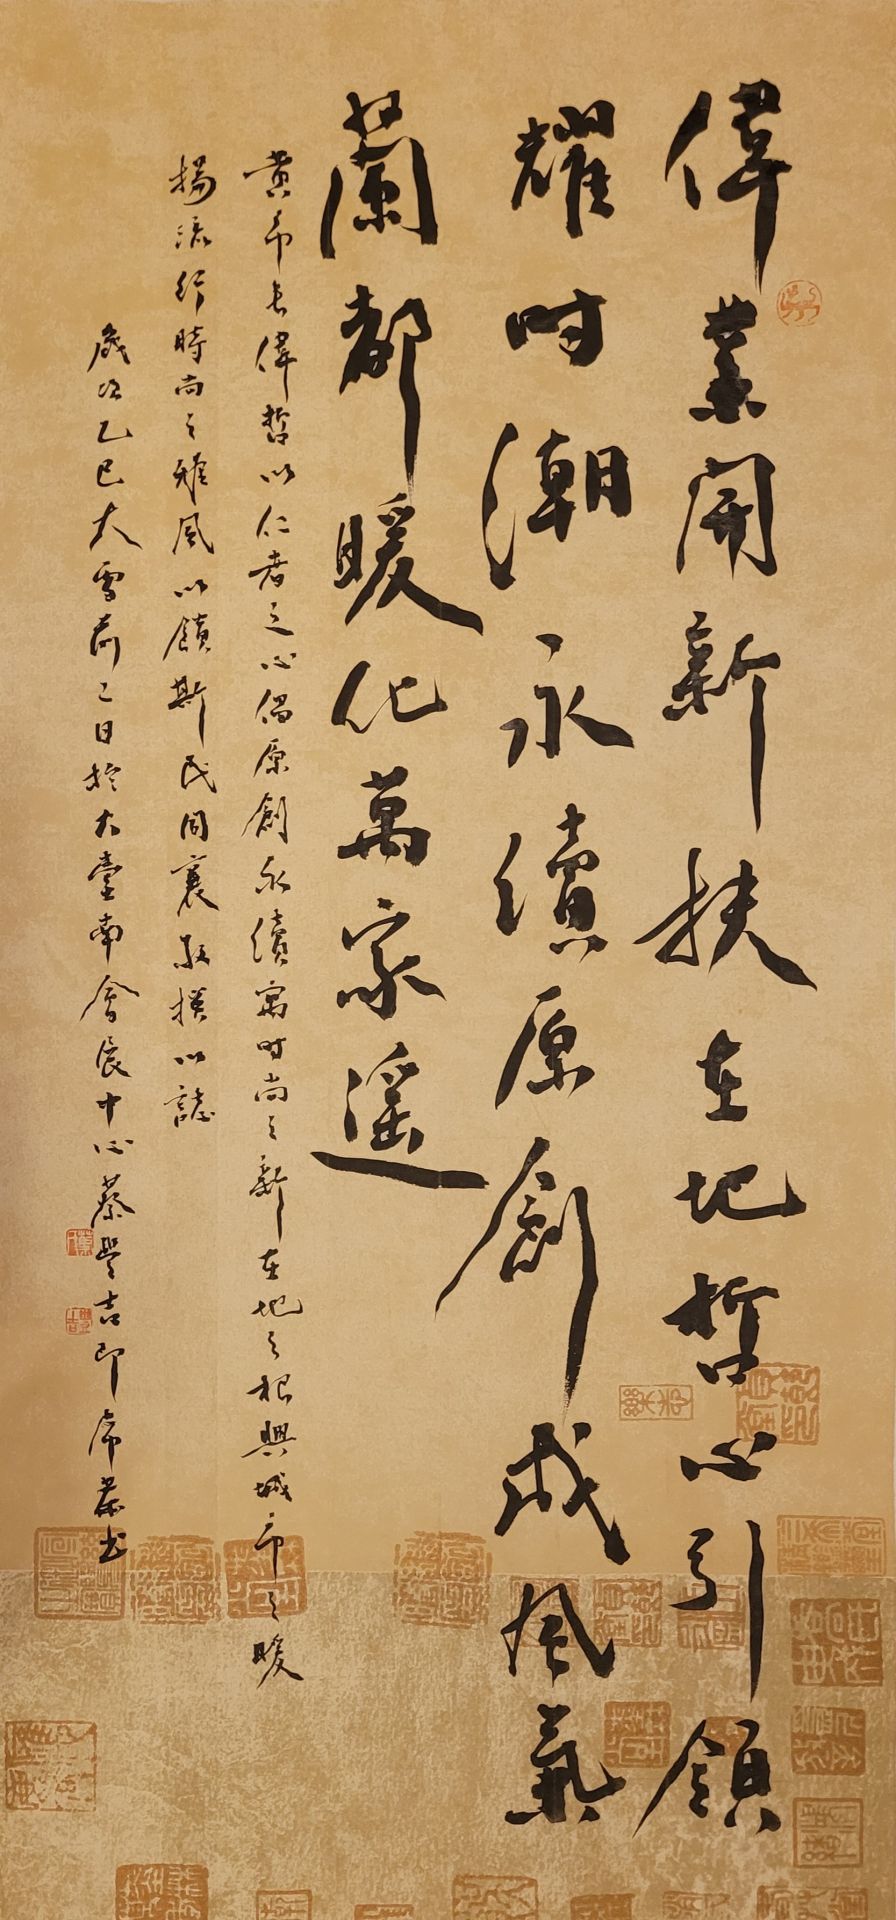 偉業開新扶在地哲心引領
耀时潮永續原創成風氣
蘭都暖化萬家遥
黃市長偉哲以仁者之心倡原創永續寓时尚之新在地之根興城市之暖
揚流行時尚之雅風以饋斯民同襄敬撰以誌
歲次乙巳大雪前二日於大臺南會展中心蔡豐吉即席并书